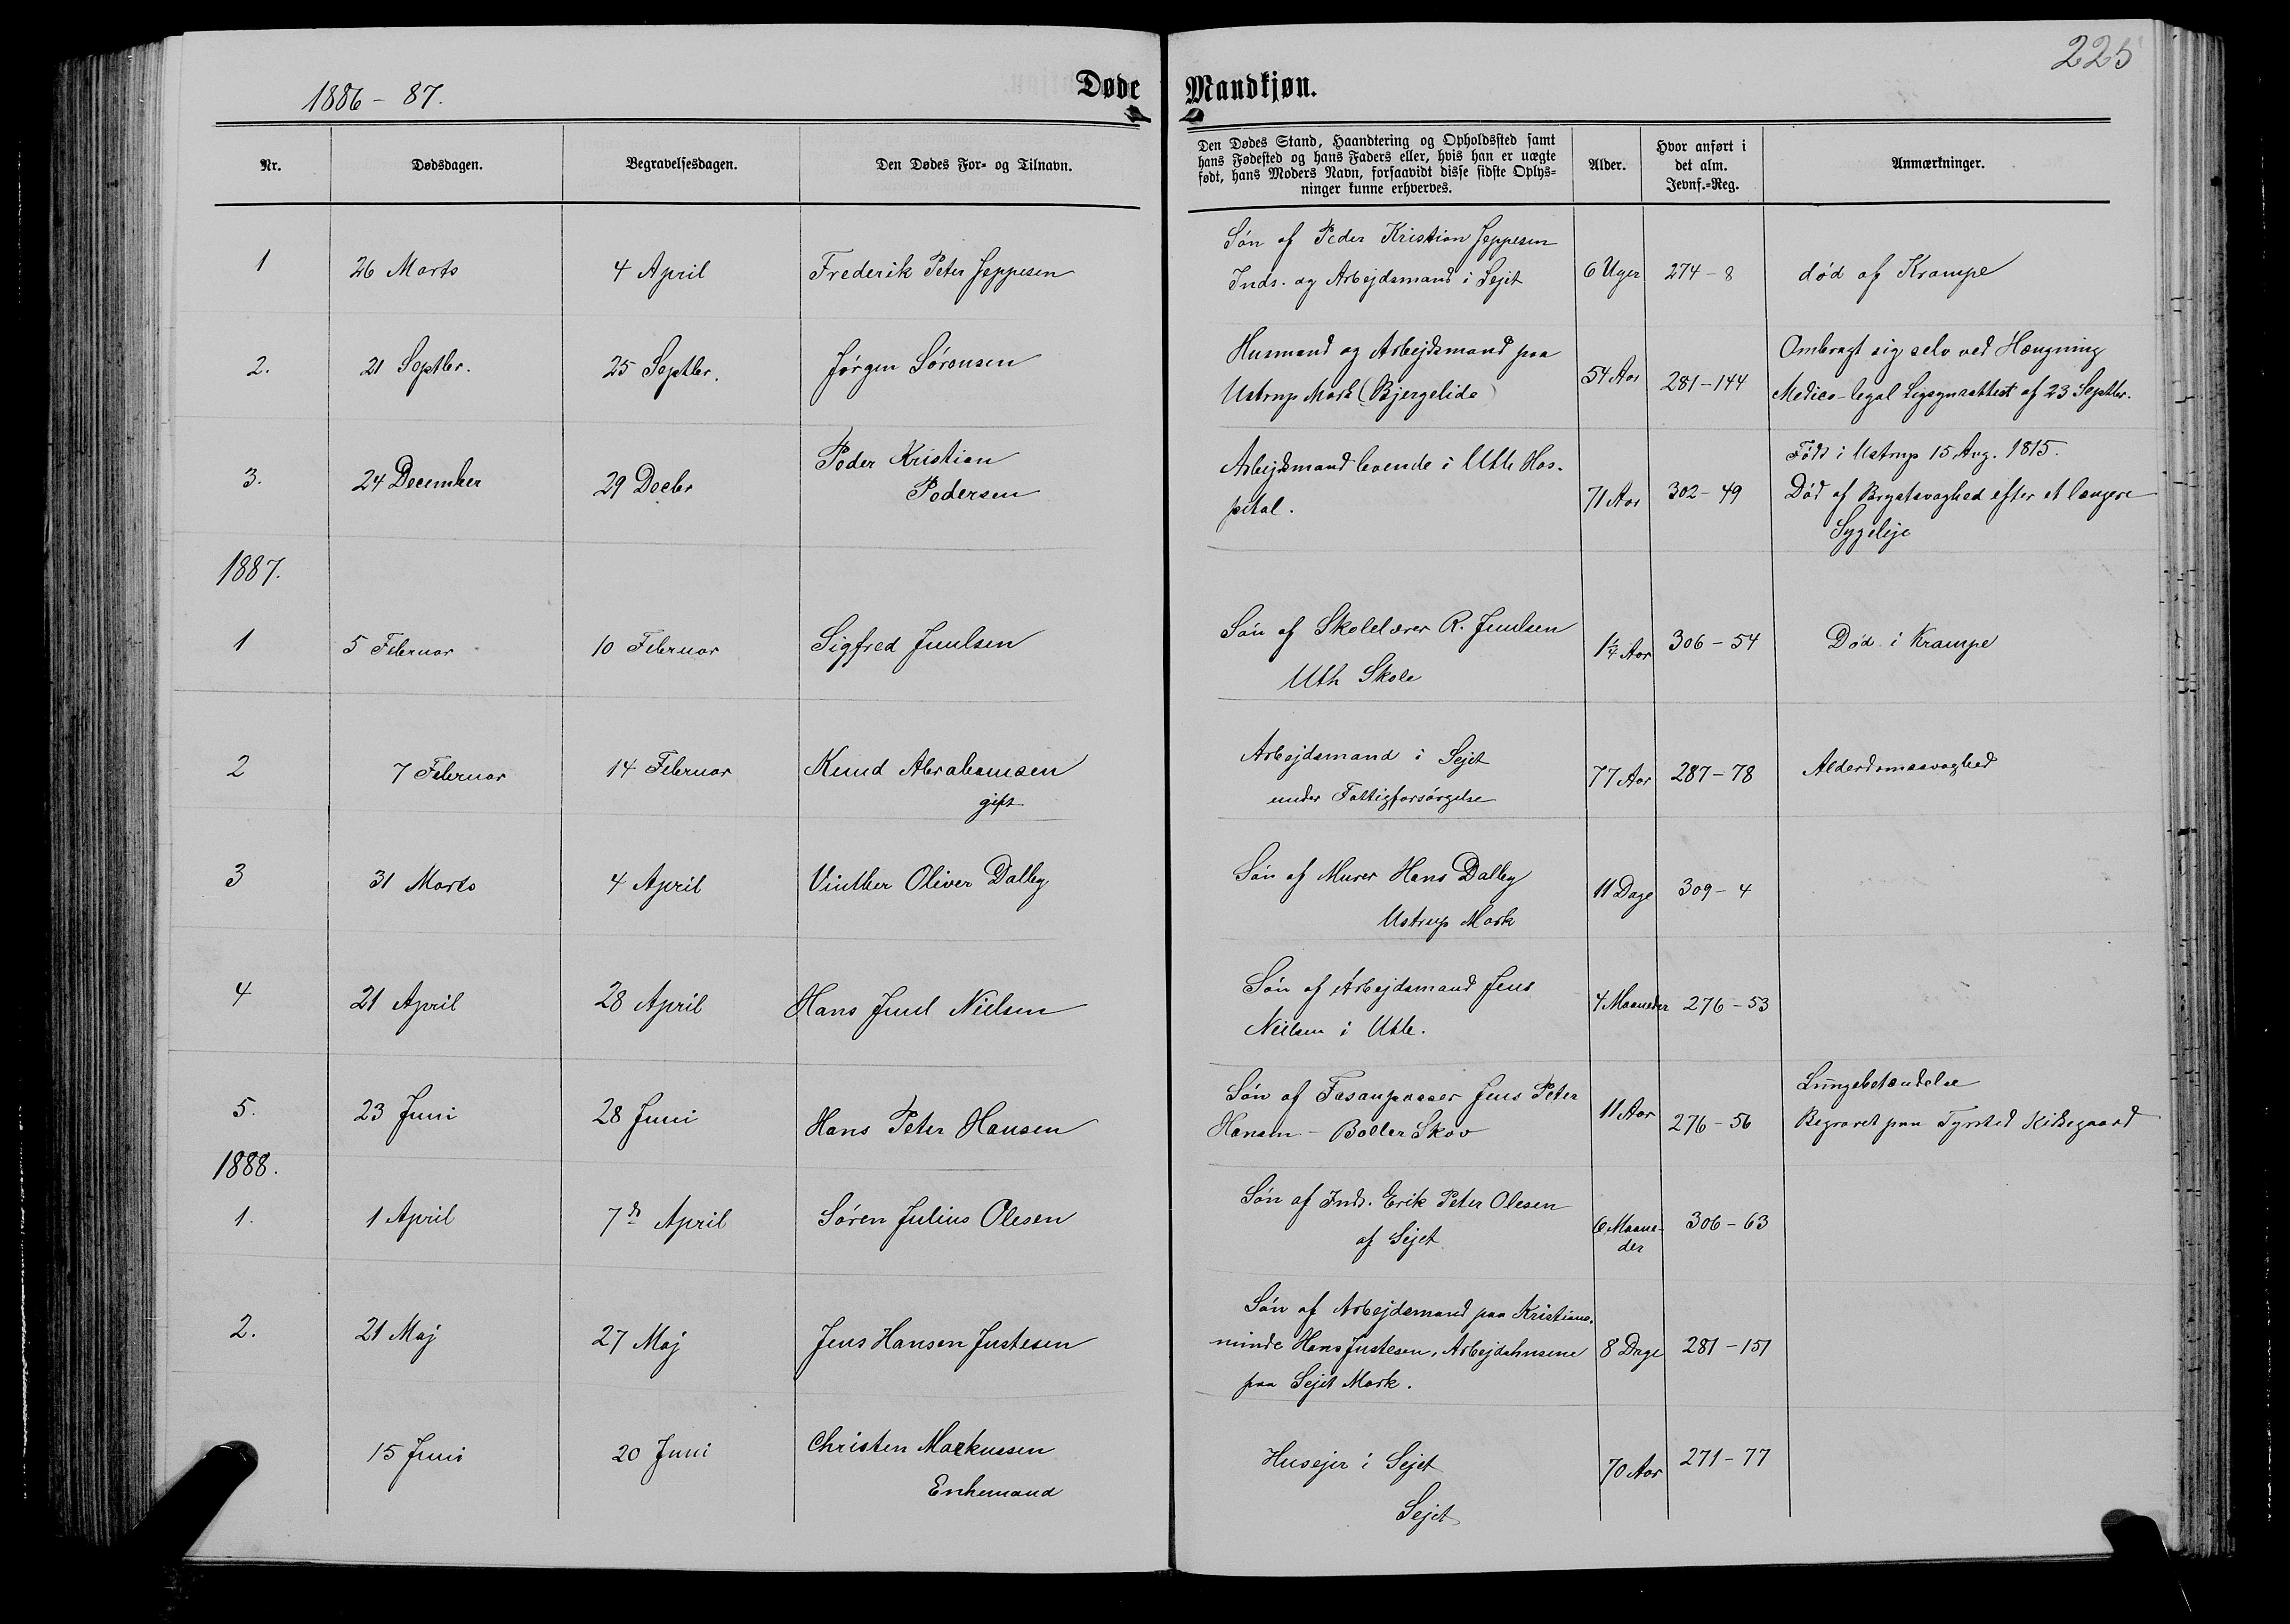 225
1886 - 87.
Døde Mandkjøn.
Nr. Dødsdagen. Begravelsesdagen. Den Dødes For- og Tilnavn. Den Dødes Stand, Haandtering og Opholdssted samt hans Fødested og hans Faders eller, hvis han er uægte født, hans Moders Navn, forsaavidt disse sidste Oplysninger kunne erhverves. Alder. Hvor anført i det alm. Jevnf.-Reg. Anmærkninger.
1 26 Marts 4 April Frederik Peter Jeppesen Søn af Peder Kristian Jeppesen
Inds. og Arbejdsmand i Sejet 6 Uger 274 - 8 død af Krampe
2. 21 Septbr. 25 Septbr. Jørgen Sørensen Husmand og Arbejdsmand paa
Ustrup Mark (Bjergelide) 54 Aar 281 - 144 Ombragt sig selv ved Hængning
Medico-legal Ligsynsattest af 23 Septbr.
3. 24 December 29 Decbr Peder Kristian
Pedersen Arbejdsmand levende i Uth Hos-
pital. 71 Aar 302 - 49 Født i Ustrup 15 Aug. 1815.
Død af Brystsvaghed efter et længere
Sygeleje
1887.
1 5 Februar 10 Februar Sigfred Juulsen Søn af Skolelærer R. Juulsen
Uth Skole 1¼ Aar 306 - 54 Død i Krampe
2 7 Februar 14 Februar Knud Abrahamsen
gift Arbejdsmand i Sejet
under Fattigforsørgelse 77 Aar 287 - 78 Alderdomssvaghed
3 31 Marts 4 April Vinther Oliver Dalby Søn af Murer Hans Dalby
Ustrup Mark 11 Dage 309 - 4
4 21 April 28 April Hans Juul Nielsen Søn af Arbejdsmand Jens
Nielsen i Uth. 4 Maaneder 276 - 53
5. 23 Juni 28 Juni Hans Peter Hansen Søn af Fasanpasser Jens Peter
Hansen - Boller Skov 11 Aar 276 - 56 Lungebetændelse
Begravet paa Tyrsted Kirkegaard
1888.
1. 1 April 7de April Søren Julius Olesen Søn af Inds. Erik Peter Olesen
af Sejet 6 Maane-
der 306 - 63
2. 21 Maj 27 Maj Jens Hansen Justesen Søn af Arbejdsmand paa Kristians-
minde Hans Justesen, Arbejdshusene
paa Sejet Mark. 8 Dage 281 - 151
15 Juni 20 Juni Christen Markussen
Enkemand Husejer i Sejet
Sejet 70 Aar 271 - 77